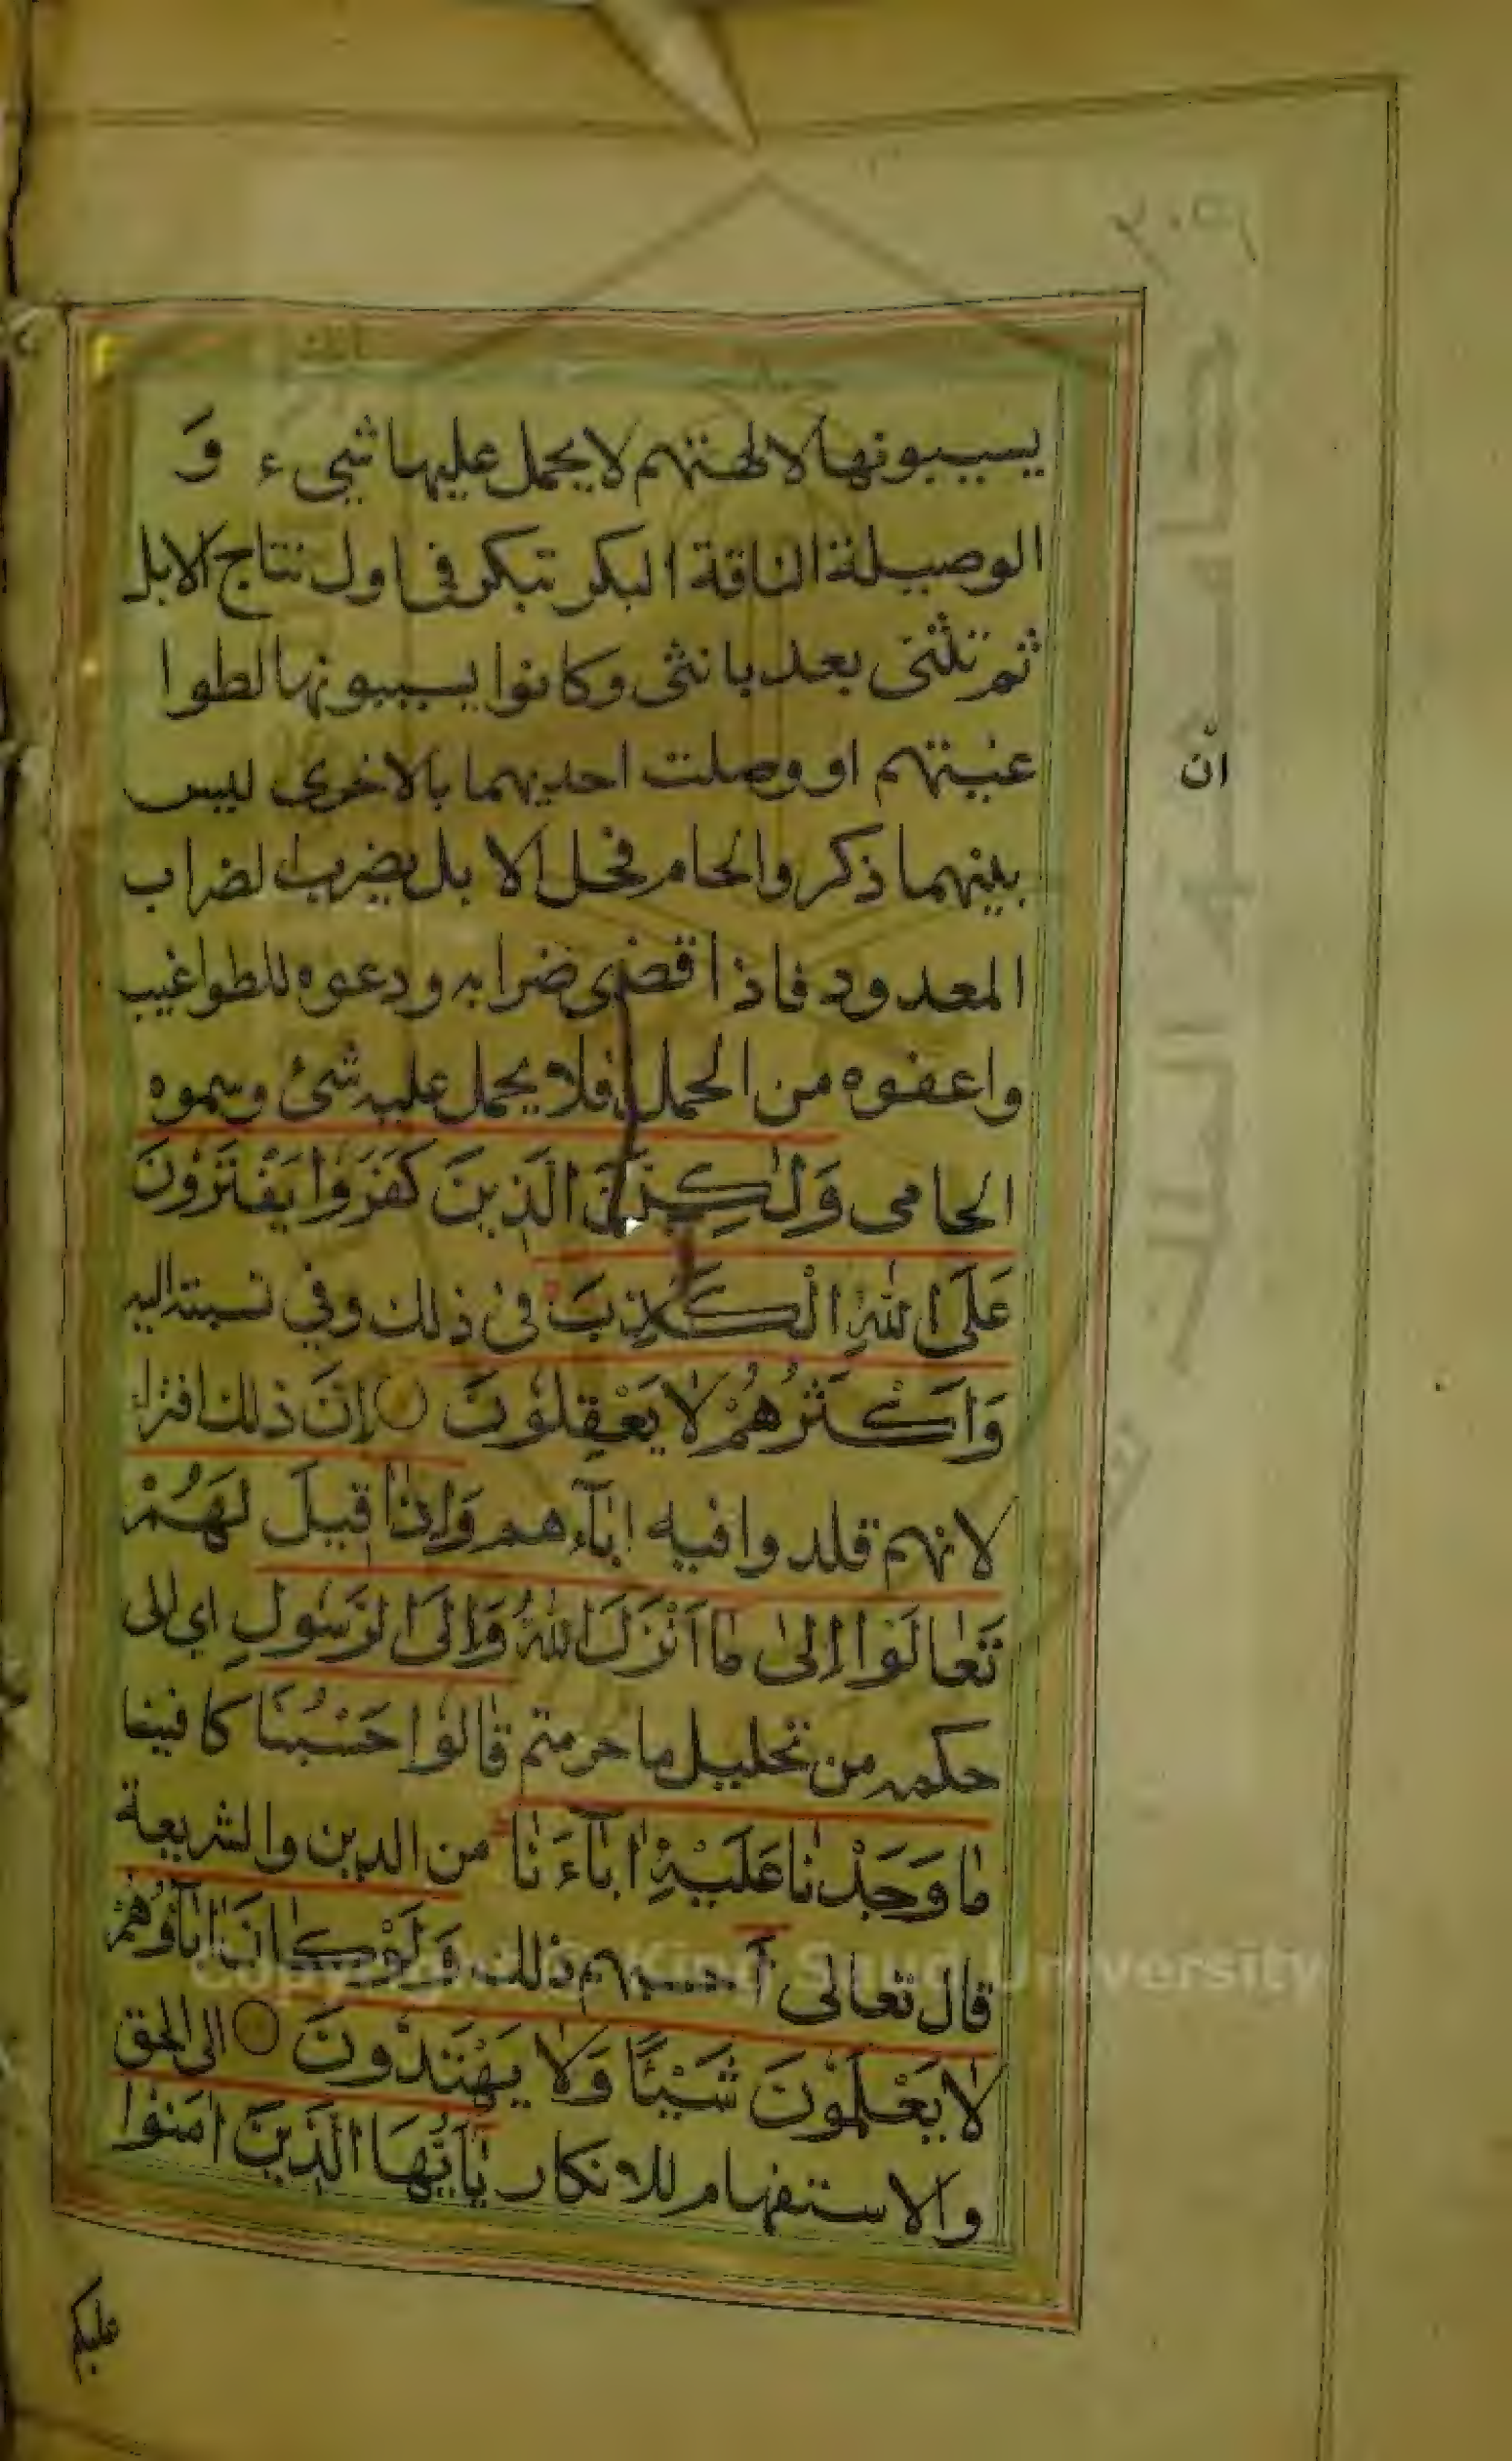 ٢٠٩
يسيبونها لالهتهم لا يحمل عليها شيء وَ
الوصيلة الناقة البكر تبكر في اول نتاج الابل
ثم تثنى بعد بانثى وكانوا يسيبونها لطوا
غيتهم او وصلت احديهما بالاخرى ليس
ان
بينهما ذكر والحام فحل الابل يضرب الضراب
المعدود فاذا قضى ضرابه ودعوه للطواغيت
واعفوه من الحمل فلا يحمل عليه شئ وسموه
الحامى وَلٰكِنَّ الَّذِينَ كَفَرُوا يَفْتَرُونَ
عَلَى اللّٰهِ الْكَذِبَ فى ذلك وفي نسبته اليه
وَاَكْثَرُهُمْ لَا يَعْقِلُونَ اِنَّ ذلك افتراء
لانهم قلدوا فيه اٰبآءهم وَاِذَا قِيلَ لَهُمْ
تَعَالَوْا اِلىٰ مٰا اَنْزَلَ اللّٰهُ وَاِلَى الرَّسُولِ اى الى
حكمه من تحليل ما حرمتم قٰالُوا حَسْبُنَا كافينا
مٰا وَجَدْنٰا عَلَيْهِ اٰبٰآءَنٰا من الدين والشريعة
قال تعالى أحسبهم ذلك وَلَوْ كٰانَ اٰبٰآؤُهُمْ
لٰا يَعْلَمُونَ شَيْئًا وَلٰا يَهْتَدُونَ الى الحق
والاستفهام للانكار يٰٓاَيُّهَا الَّذِينَ اٰمَنُوا
عليكم
Copyright © King Saud University